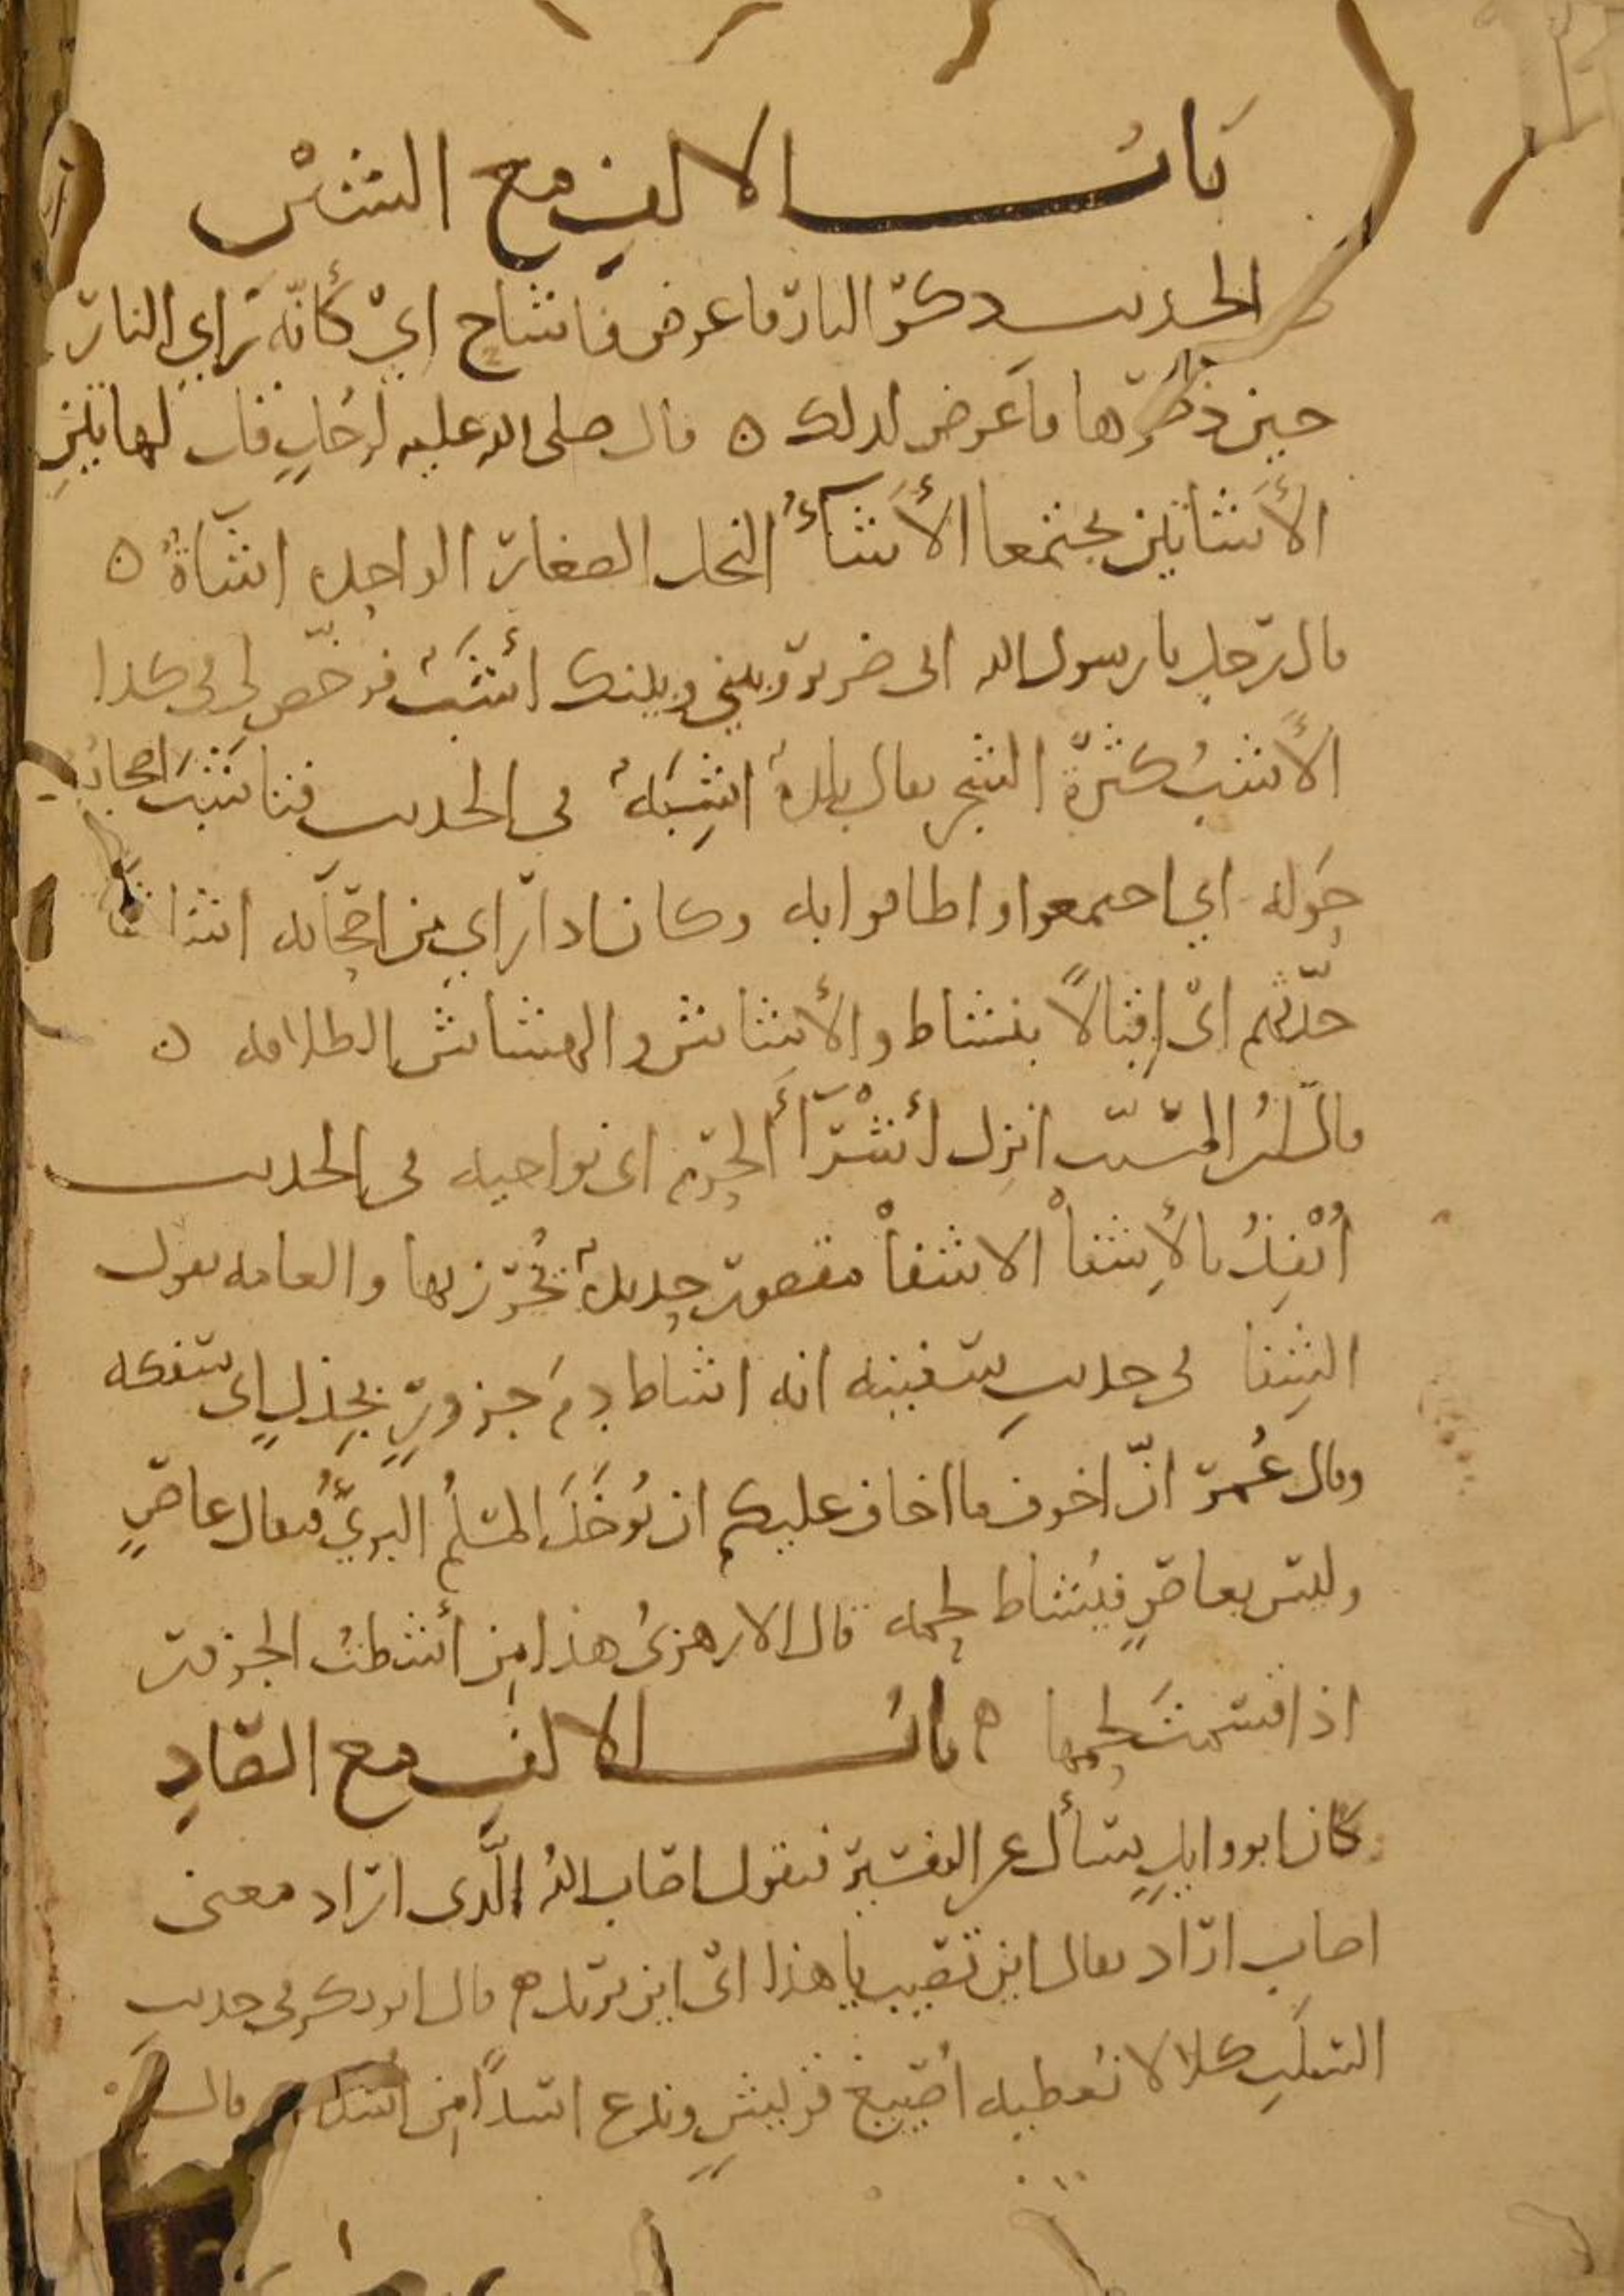 باب الالف مع الشين
الحديث ذكر النار فاعرض فاشاح اي كأنه راي النار
حين ذكرها فاعرض لذلك ه قال صلى الله عليه لرجلٍ قل لهاتين
الأشاتين يجتمعا الأَشَاءُ النخل الصغار الواحدة اشاةٌ ه
قال رجل يا رسول الله انى ضرير وبيني وبينك أشَبٌ فرخّص لي في كذا
الأشبُ كثرة الشجر يقال بلدةٌ اشِبَةٌ في الحديث فتاشّبَ اصحابه
حوله اي اجتمعوا واطافوا به وكان اذا راي من اصحابه اشاشًا
حدّثهم اىْ إقبالاً بنشاط والأشاش والهشاش الطلاقة ه
قال ابن المسيّب انزل أشْرَآءَ الحرم اى نواحيه في الحديث
أنفذُ بالإشفا الاشفا مقصور حديدةٌ يُخرَز بها والعامه تقول
الشِفا في حديث سفينه انه اشاط دمَ جزورٍ بجِذلٍ اى سفكه
وقال عُمر انّ اخوف ما اخاف عليكم ان يُوخَذَ المسلمُ البريُّ فيقال عاصٍ
وليس بعاصٍ فيُشاط لحمه قال الازهريُ هذا من أشطتُ الجزور
اذا قسمتَ لحمها ه باب الالف مع الصادِ
كان ابو وايلٍ يسأل عن التفسير فيقول اصاب اللهُ الّذى اراد معنى
اصاب اراد يقال اين تصيب يا هذا اىْ اين تريد ه قال ابو بكر في حديث
السلَبِ كلا لا نُعطيه أُصَيبغ قريشٍ وندع اسداً من اسد قال